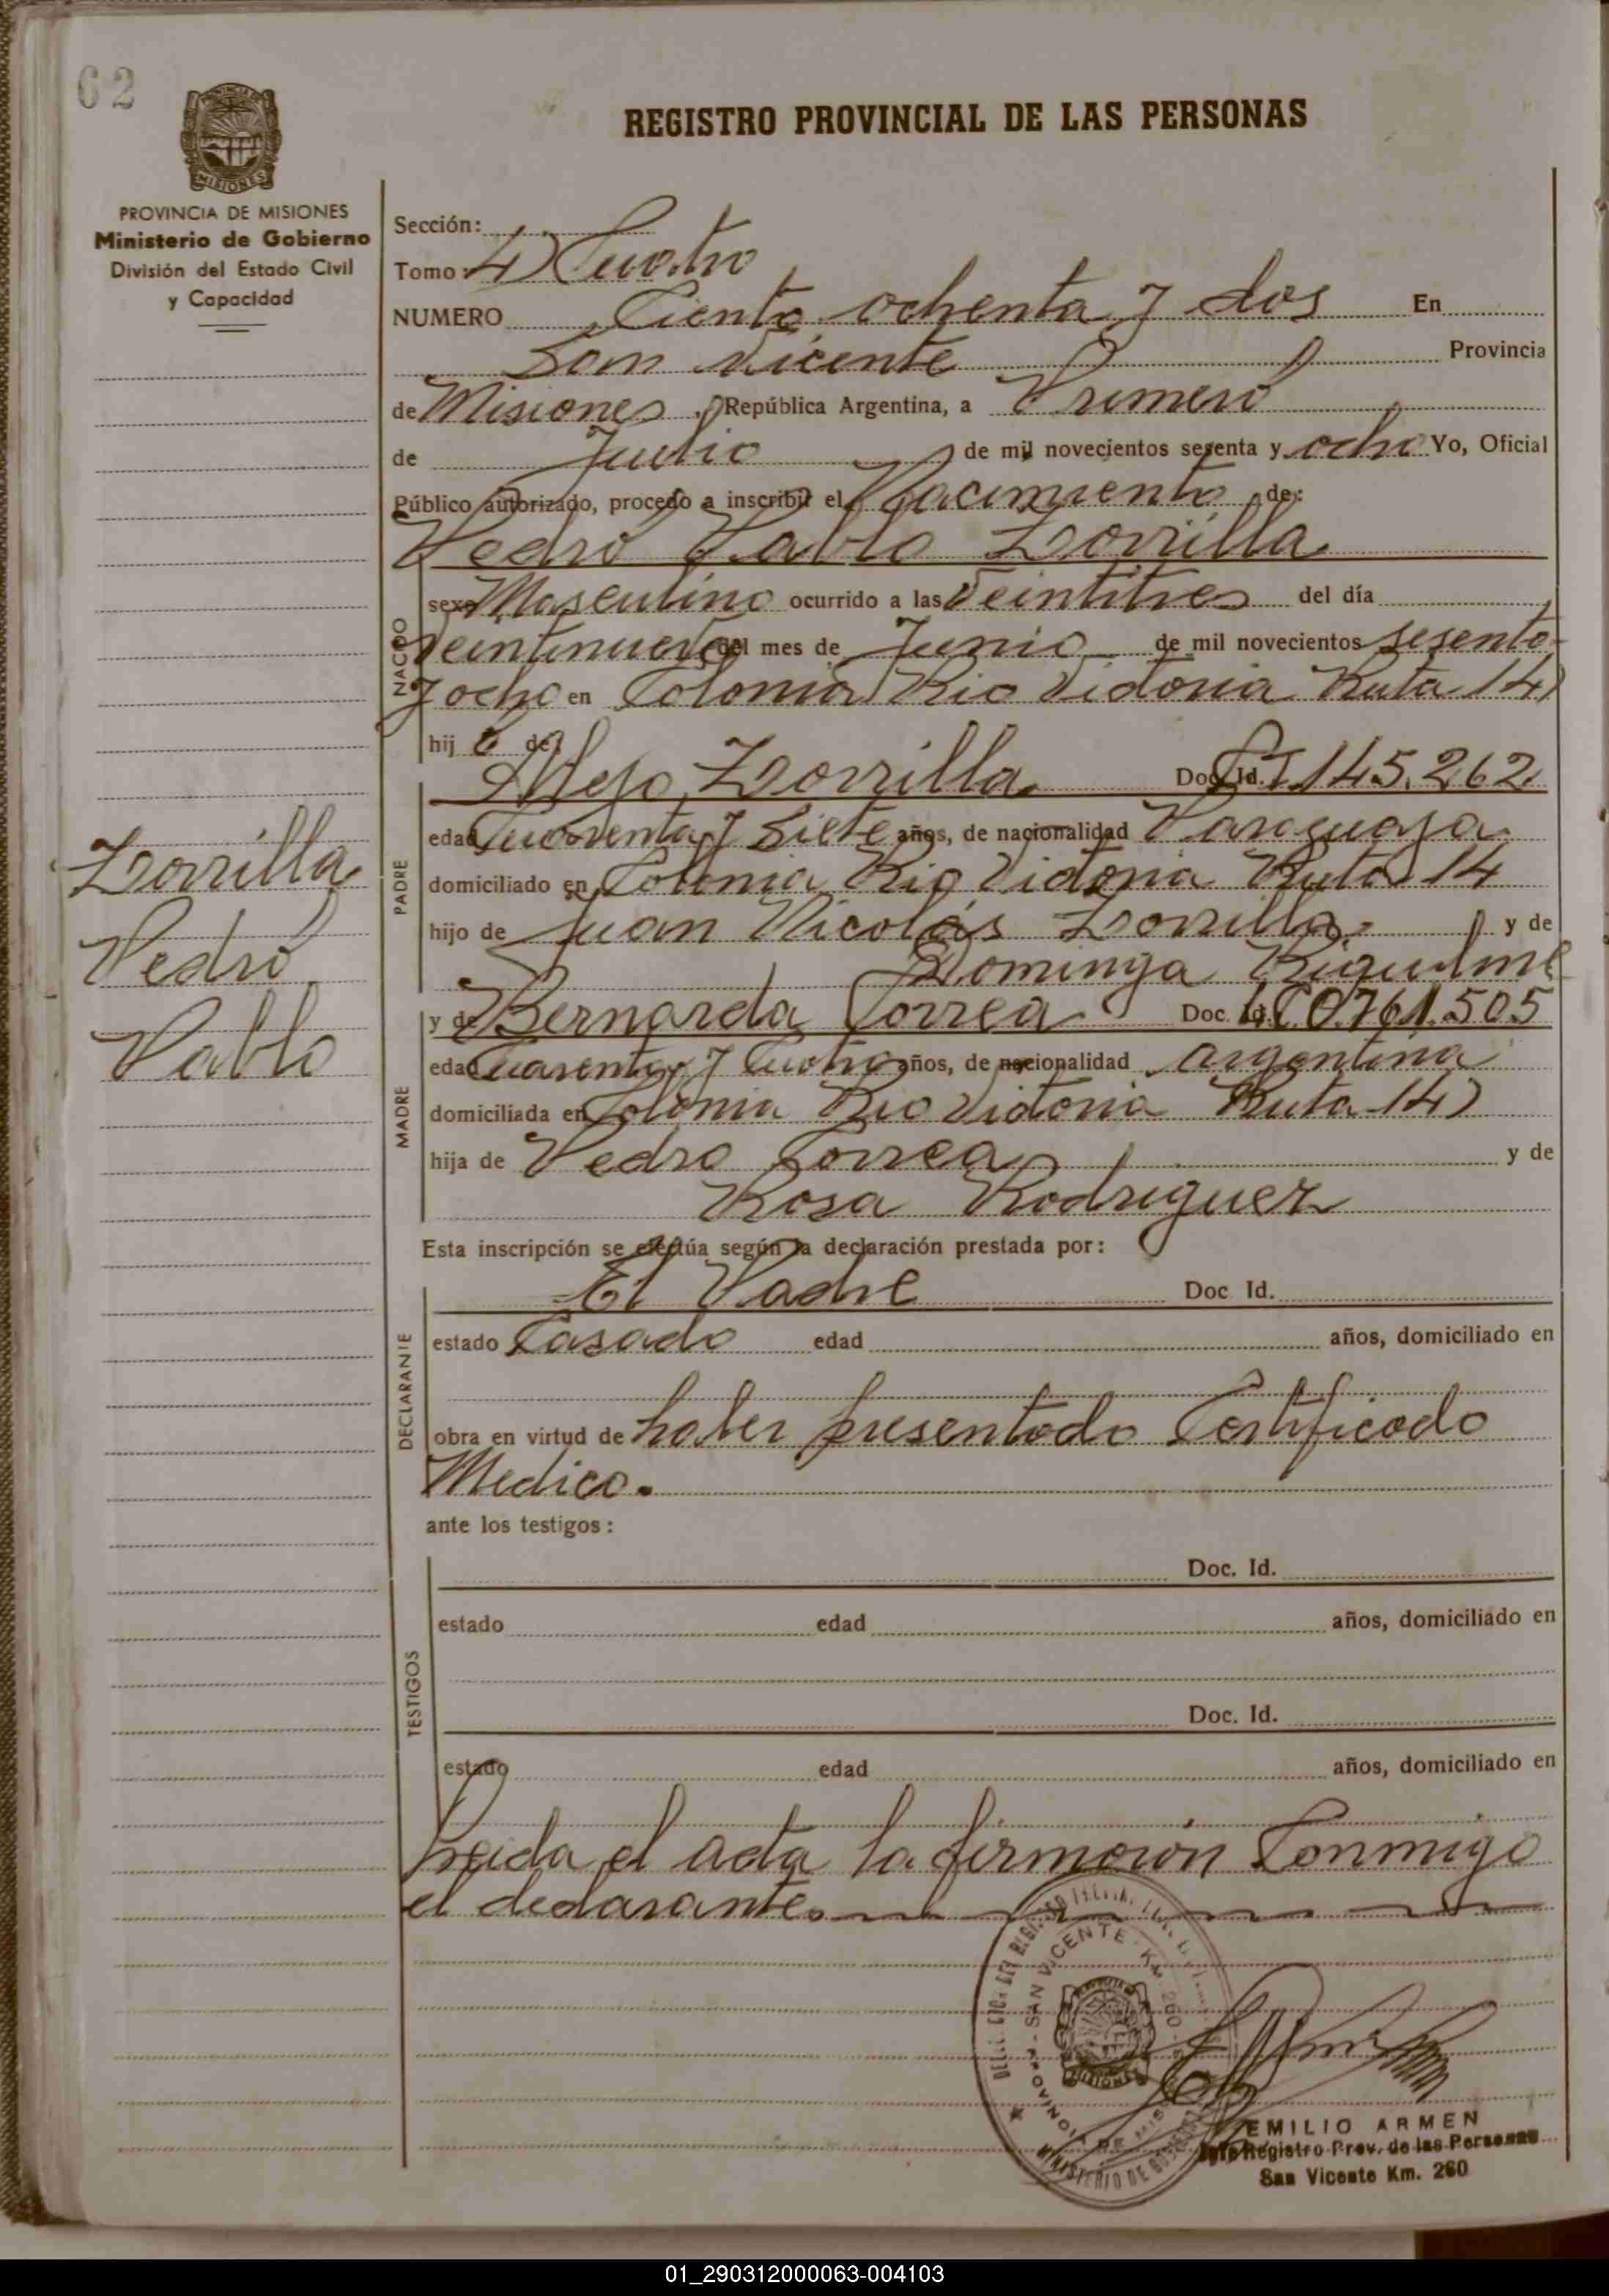 62
REGISTRO PROVINCIAL DE LAS PERSONAS
MISIONES
PROVINCIA DE MISIONES
Ministerio de Gobierno
División del Estado Civil
y Capacidad
Sección:
Tomo: 4) Cuatro
NUMERO Ciento ochenta y dos En
San Vicente Provincia
de Misiones, República Argentina, a Primero
de Julio de mil novecientos sesenta y ocho Yo, Oficial
Público autorizado, procedo a inscribir el Nacimiento de:
Pedro Pablo Zorrilla
NACIDO
sexo Masculino ocurrido a las Veintitres del día
Veintinueve del mes de Junio de mil novecientos sesenta
y ocho en Colonia Rio Victoria Ruta 14)
hijo de
PADRE
Alejo Zorrilla Doc. Id. 145.262
edad Cuarenta y Siete años, de nacionalidad Paraguaya
domiciliado en Colonia Rio Victoria Ruta 14
hijo de Juan Nicolás Zorrilla y de
Dominga Riquelme
MADRE
y de Bernarda Correa Doc. Id. 0.761.505
edad Cuarenta y Cuatro años, de nacionalidad argentina
domiciliada en Colonia Rio Victoria Ruta 14)
hija de Pedro Correa y de
Rosa Rodriguez
Zorrilla
Pedro
Pablo
Esta inscripción se efectúa según la declaración prestada por:
DECLARANTE
El Padre Doc Id.
estado Casado edad años, domiciliado en
obra en virtud de haber presentado Certificado
Medico.
ante los testigos:
TESTIGOS
Doc. Id.
estado edad años, domiciliado en
Doc. Id.
estado edad años, domiciliado en
Leida el acta la firmaron Conmigo
el declarante.
SAN VICENTE - KM. 260
MISIONES
MINISTERIO DE GOBIERNO
EMILIO ARMEN
Jefe Registro Prov. de las Personas
San Vicente Km. 260
01_290312000063-004103